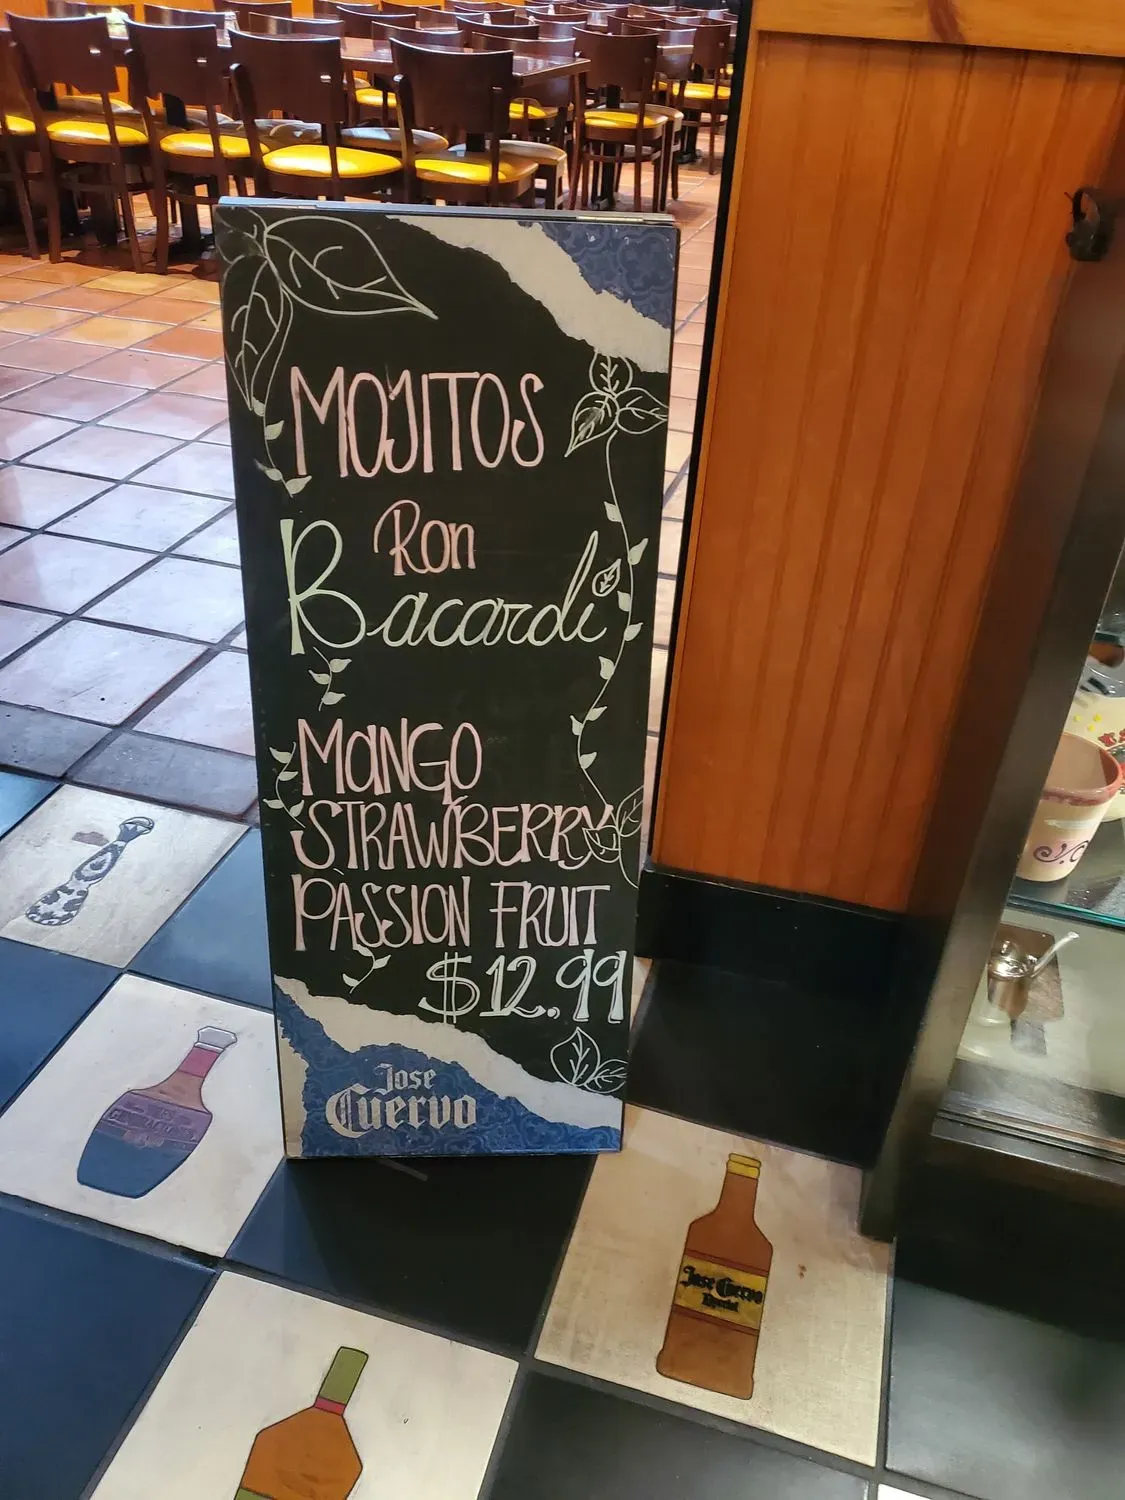 MOJITOS
Ron
Bacardi
MANGO
STRAWBERRY
PASSION FRUIT
$12.99
Jose
Cuervo
Jose Cuervo
Especial